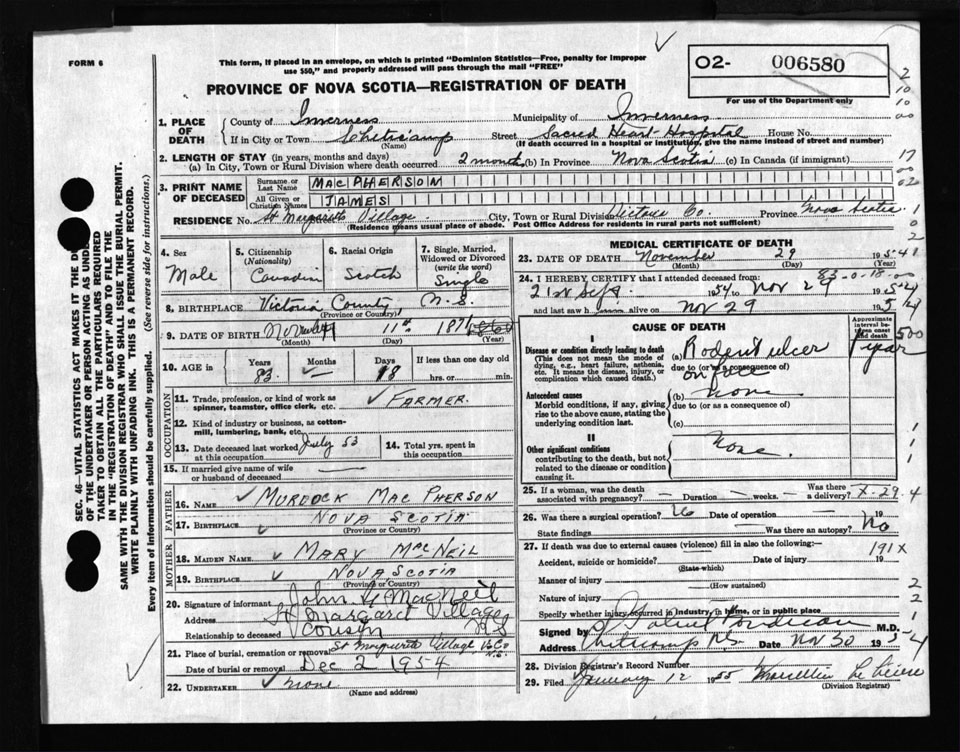 FORM 6
This form, if placed in an envelope, on which is printed "Dominion Statistics—Free, penalty for improper
use $50," and properly addressed will pass through the mail "FREE"
O2- 006580
For use of the Department only
PROVINCE OF NOVA SCOTIA—REGISTRATION OF DEATH
1. PLACE OF DEATH
County of Inverness Municipality of Inverness
If in City or Town Cheticamp Street Sacred Heart Hospital House No.
(Name) (If death occurred in a hospital or institution, give the name instead of street and number)
2. LENGTH OF STAY (in years, months and days)
(a) In City, Town or Rural Division where death occurred 2 months (b) In Province Nova Scotia (c) In Canada (if immigrant)
3. PRINT NAME OF DECEASED
Surname or Last Name MACPHERSON
All Given or Christian Names JAMES
RESIDENCE No. St Margarets Village City, Town or Rural Division Victoria Co. Province Nova Scotia
(Residence means usual place of abode. Post Office Address for residents in rural parts not sufficient)
4. Sex
Male
5. Citizenship
(Nationality)
Canadian
6. Racial Origin
Scotch
7. Single, Married, Widowed or Divorced
(write the word)
Single
8. BIRTHPLACE Victoria County N.S.
(Province or Country)
9. DATE OF BIRTH 11th 1871
(Month) (Day) (Year)
10. AGE in
Years 83
Months —
Days 18
If less than one day old
hrs. or min.
OCCUPATION
11. Trade, profession, or kind of work as
spinner, teamster, office clerk, etc. FARMER.
12. Kind of industry or business, as cotton-
mill, lumbering, bank, etc.
13. Date deceased last worked July 53
at this occupation
14. Total yrs. spent
in this occupation
15. If married give name of wife
or husband of deceased —
FATHER
16. NAME MURDOCK MACPHERSON
17. BIRTHPLACE NOVA SCOTIA
(Province or Country)
MOTHER
18. MAIDEN NAME MARY MACNEIL
19. BIRTHPLACE NOVA SCOTIA
(Province or Country)
20. Signature of informant John H MacNeil
Address St Margaret Village
N.S
Relationship to deceased Cousin
21. Place of burial, cremation or removal St Margarets Village V. Co
N.S.
Date of burial or removal Dec 2 1954
22. UNDERTAKER None
(Name and address)
MEDICAL CERTIFICATE OF DEATH
23. DATE OF DEATH November 29 1954
(Month) (Day) (Year)
83-0-18-00
24. I HEREBY CERTIFY that I attended deceased from
21st Sept. 1954 to Nov 29 1954
and last saw h alive on Nov 29 1954
CAUSE OF DEATH
Approximate interval between onset and death
I
Disease or condition directly leading to death
(This does not mean the mode of
dying, e.g., heart failure, asthenia,
etc. It means the disease, injury, or
complication which caused death.)
(a) Rodent ulcer
due to (or as a consequence of)
on face
1 year
500
Antecedent causes
Morbid conditions, if any, giving
rise to the above cause, stating the
underlying condition last.
(b) None
due to (or as a consequence of)
(c)
II
Other significant conditions
contributing to the death, but not
related to the disease or condition
causing it.
None.
25. If a woman, was the death
associated with pregnancy? — Duration — weeks. — Was there a delivery? X-29
26. Was there a surgical operation? No Date of operation — 19
State findings Was there an autopsy? No
27. If death was due to external causes (violence) fill in also the following:— 191X
Accident, suicide or homicide? Date of injury 19
(State which)
Manner of injury
(How sustained)
Nature of injury
Specify whether injury occurred in industry, in home, or in public place
Signed by M.D.
Address Cheticamp N.S. Date Nov 30 1954
28. Division Registrar's Record Number
29. Filed January 12 1955
(Division Registrar)
SEC. 46—VITAL STATISTICS ACT MAKES IT THE DUTY
OF THE UNDERTAKER OR PERSON ACTING AS UNDER-
TAKER TO OBTAIN ALL THE PARTICULARS REQUIRED
IN THE "REGISTRATION OF DEATH" AND TO FILE THE
SAME WITH THE DIVISION REGISTRAR WHO SHALL ISSUE THE BURIAL PERMIT.
WRITE PLAINLY WITH UNFADING INK. THIS IS A PERMANENT RECORD.
Every item of Information should be carefully supplied. (See reverse side for instructions.)